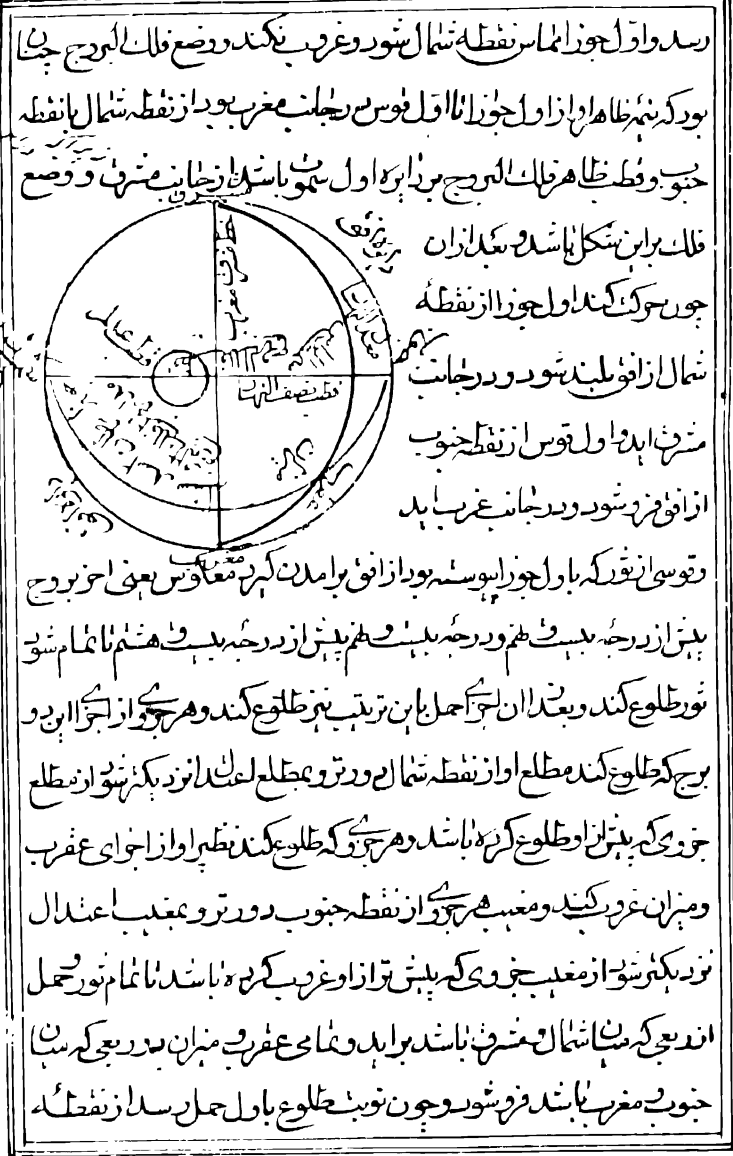 رسد و اول جوزا مماس نقطه شمال شود و غروب نکند و وضع فلک البروج چنان
بود که نیمه ظاهر او از اول جوزا تا اول قوس در جانب مغرب بود از نقطه شمال تا نقطه
جنوب و قطب ظاهر فلک البروج بر دایره اول سموت باشد از جانب مشرق و وضع
فلک بر این شکل باشد و بعد از ان
چون حرکت کند اول جوزا از نقطه
شمال از افق بلند شود و در جانب
مشرق اید و اول قوس از نقطه جنوب
از افق فرو شود و در جانب غرب اید
و قوسی از ثور که باول جوزا پیوسته بود از افق برامدن کیرد معکوس یعنی اخر بروج
پیش از درجه بیست و نهم و درجه بیست و نهم پیش از درجه بیست و هشتم تا تمام شود
ثور طلوع کند و بعد از ان اجزای حمل باین ترتیب نیز طلوع کند و هر جزوی از اجزا این دو
برج که طلوع کند مطلع او از نقطه شمال دورتر و بمطلع اعتدال نزدیکتر شود از مطلع
جزوی که پیش از او طلوع کرده باشد و هر جزوی که طلوع کند نظیر او از اجزای عقرب
و میزان غروب کند و مغیب هر جزوی از نقطه جنوب دورتر و بمغیب اعتدال
نزدیکتر شود از مغیب جزوی که پیش تر از او غروب کرده باشد تا تمام ثور و حمل
از ربعی که میان شمال و مشرق باشد براید و تمامی عقرب و میزان در ربعی که میان
جنوب و مغرب باشد فرو شود و چون نوبت طلوع باول حمل رسد از نقطهٔ
مشرق
خط مشرق مغرب
قطب عالم
معدل النهار
خط نصف النهار
میزان
عقرب
مغرب